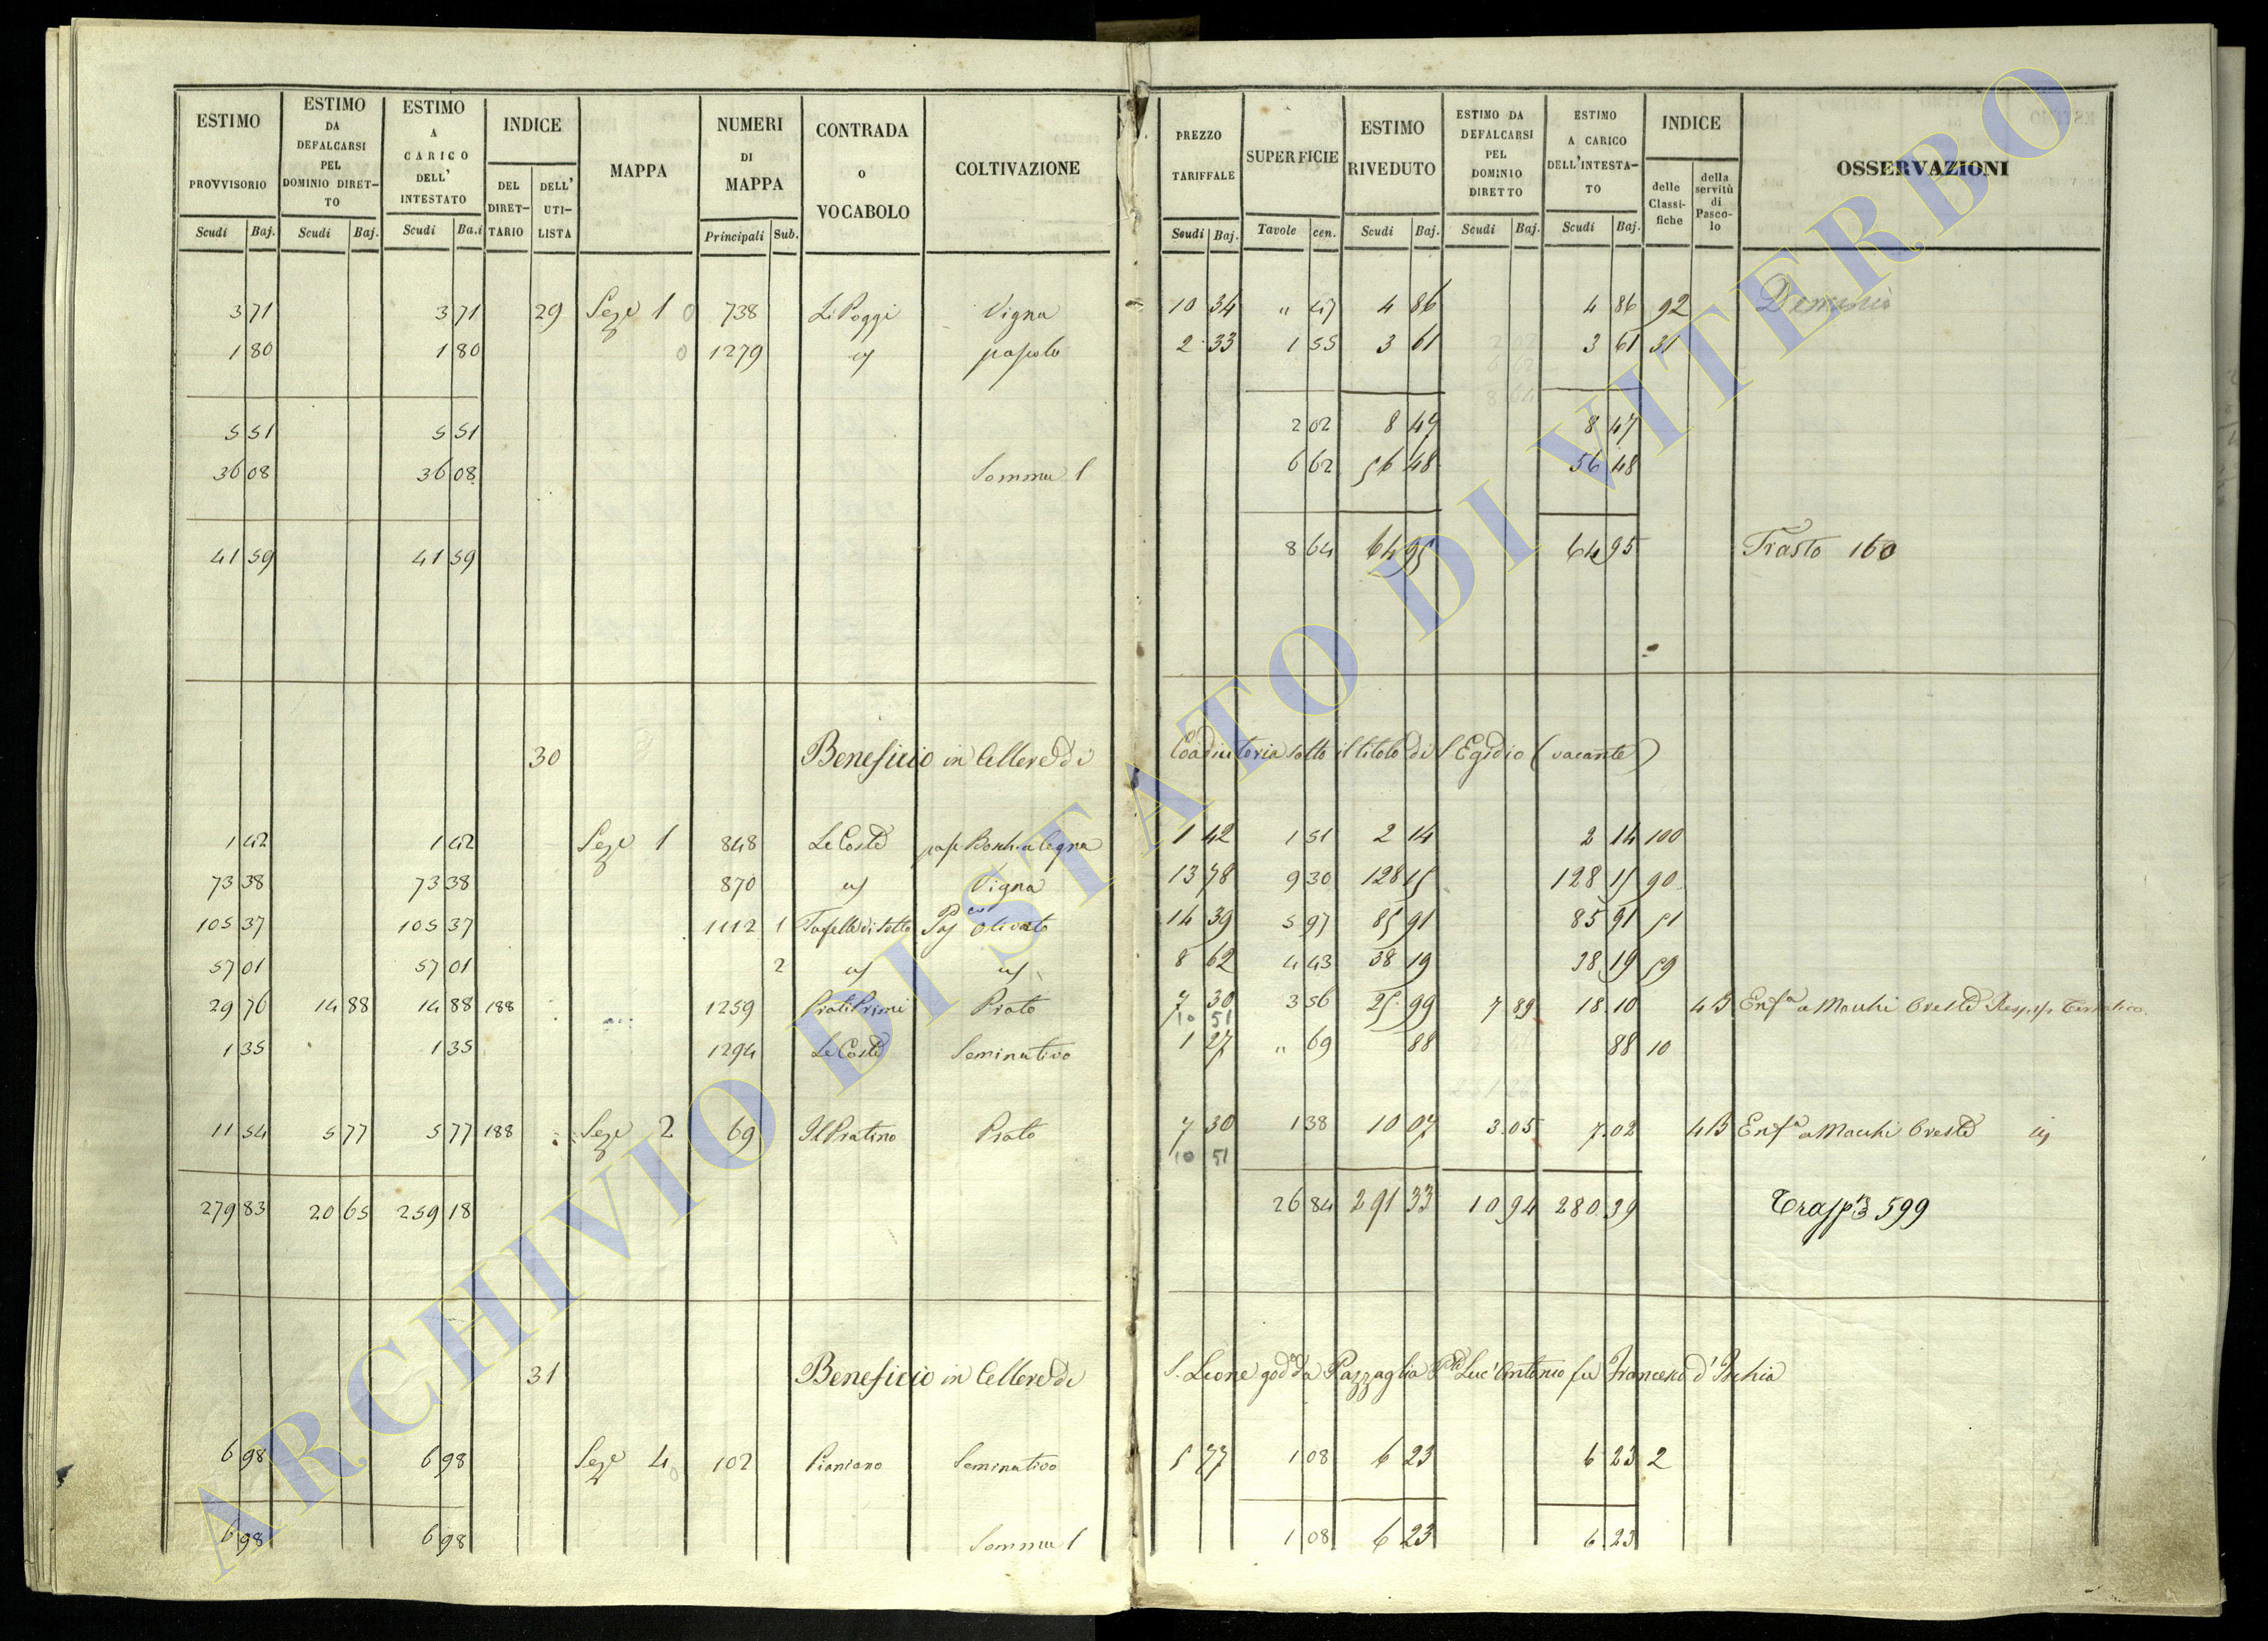 ESTIMO PROVVISORIO Scudi Baj.
ESTIMO DA DEFALCARSI PEL DOMINIO DIRET-TO Scudi Baj.
ESTIMO A CARICO DELL' INTESTATO Scudi Ba.i
INDICE DEL DIRET-TARIO DELL' UTI-LISTA
MAPPA
NUMERI DI MAPPA Principali Sub.
CONTRADA o VOCABOLO
COLTIVAZIONE
PREZZO TARIFFALE Scudi Baj.
SUPERFICIE Tavole cen.
ESTIMO RIVEDUTO Scudi Baj.
ESTIMO DA DEFALCARSI PEL DOMINIO DIRETTO Scudi Baj.
ESTIMO A CARICO DELL'INTESTA-TO Scudi Baj.
INDICE delle Classi-fiche della servitù di Pasco-lo
OSSERVAZIONI
3 71 3 71 29 Seze 1 0 738 Li Poggi Vigna 10 34 " 47 4 86 4 86 92
1 80 1 80 0 1279 2 33 1 55 3 61 3 61 31
5 51 5 51 2 02 8 47 8 47
36 08 36 08 Somma 6 62 56 48 56 48
41 59 41 59 8 64 64 95 64 95 Trasto 160
30 Beneficio in Cellere di Coadiutoria sotto il titolo di S Egidio (vacante)
1 42 1 42 Seze 1 848 Le Coste 1 42 1 51 2 14 2 14 100
73 38 73 38 870 Vigna 13 78 9 30 128 15 128 15 90
105 37 105 37 1112 1 olivato 14 39 5 97 85 91 85 91 51
57 01 57 01 2 8 62 4 43 38 19 38 19 59
29 76 14 88 14 88 188 1259 Prati Primi Prato 7 30 3 56 25 99 7 89 18 10 4 B Enfa a Macchi Oreste
10 51
1 35 1 35 1294 Le Coste Seminativo 1 27 " 69 88 88 10
11 54 5 77 5 77 188 Seze 2 69 Il Pratino Prato 7 30 1 38 10 07 3 05 7 02 4 B Enfa a Macchi Oreste
10 51
279 83 20 65 259 18 26 84 291 33 10 94 280 39 599
31 Beneficio in Cellere di S. Leone god. da Pazzaglia Luc'Antonio fu Francesco d'Ischia
6 98 6 98 Seze 4 0 102 Pianiano Seminativo 5 77 1 08 6 23 6 23 2
6 98 6 98 Somma 1 08 6 23 6 23
ARCHIVIO DI STATO DI VITERBO